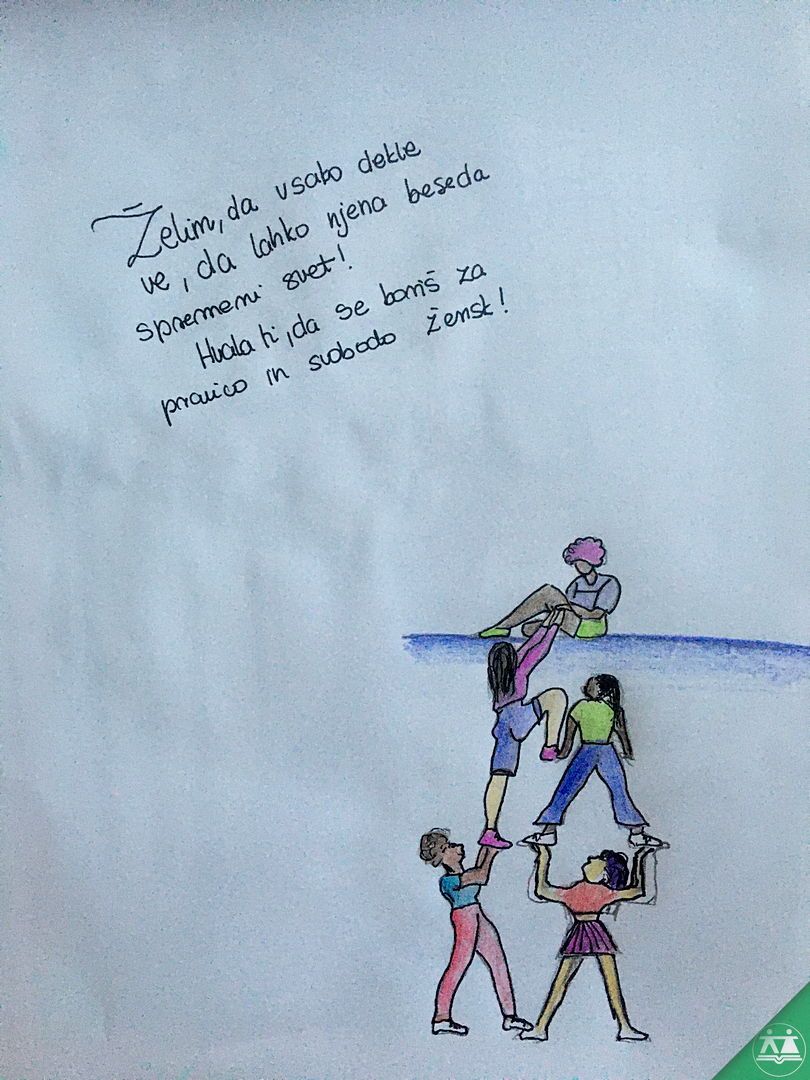 Želim, da vsako dekle
ve, da lahko njena beseda
spremeni svet!
Hvala ti, da se boriš za
pravico in svobodo žensk!